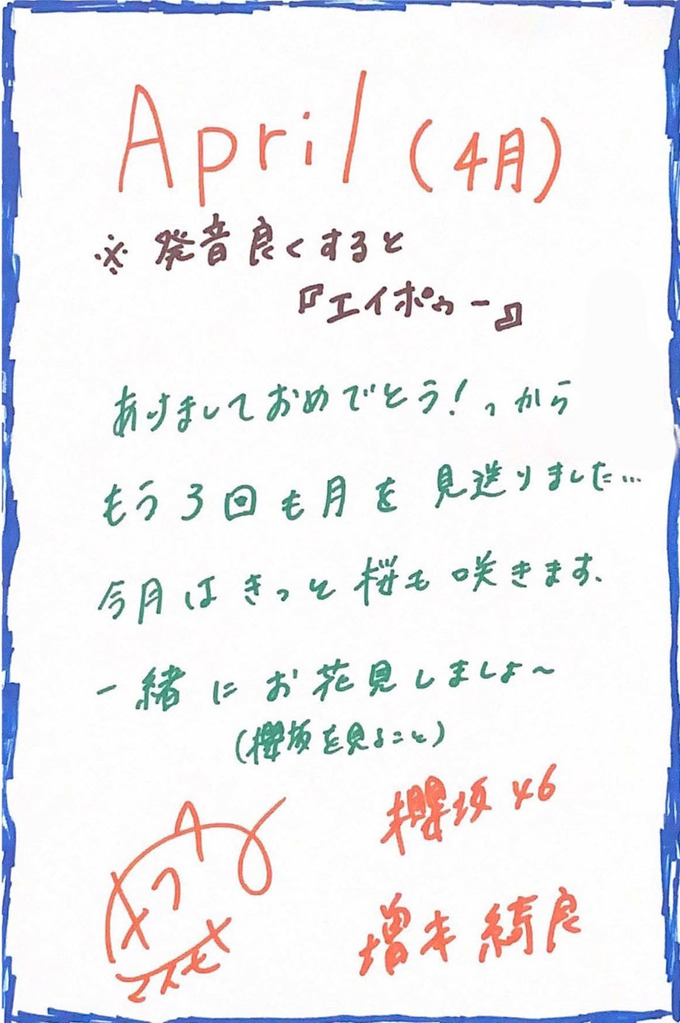 April (4月)
※発音良くすると
『エイポゥー』
あけましておめでとう！っから
もう3回も月を見送りました…
今月はきっと桜も咲きます、
一緒にお花見しましょ〜
(櫻坂を見ること)
櫻坂46
増本綺良